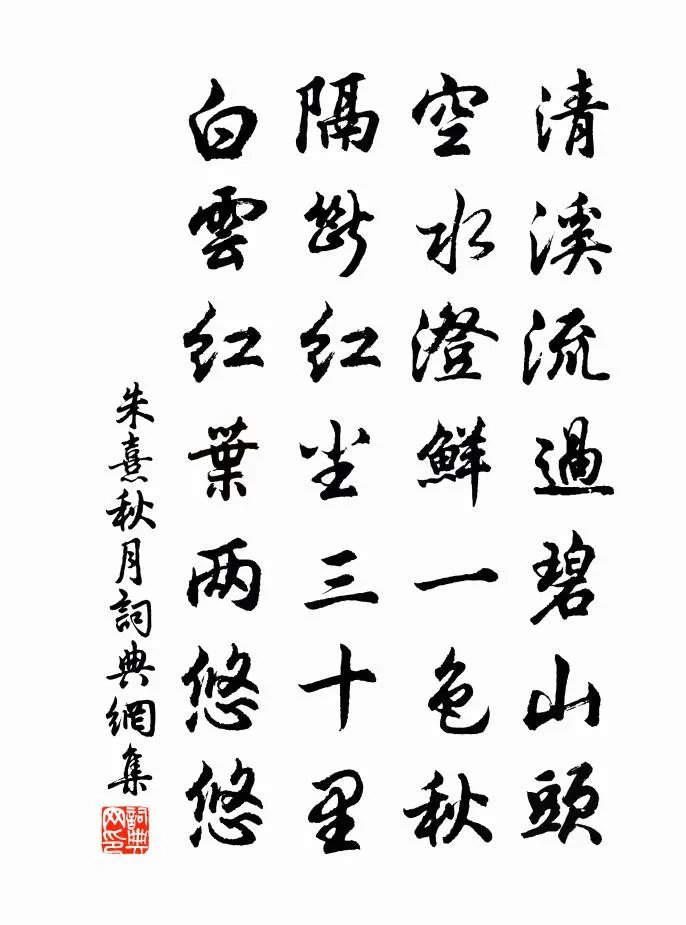 清溪流過碧山頭
空水澄鮮一色秋
隔斷紅尘三十里
白雲红葉两悠悠
朱熹秋月詞典網集
詞典
网印